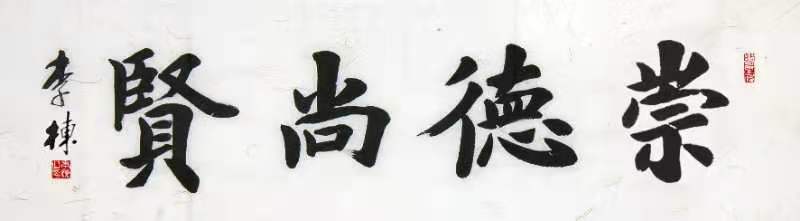 崇德尚賢
李棟